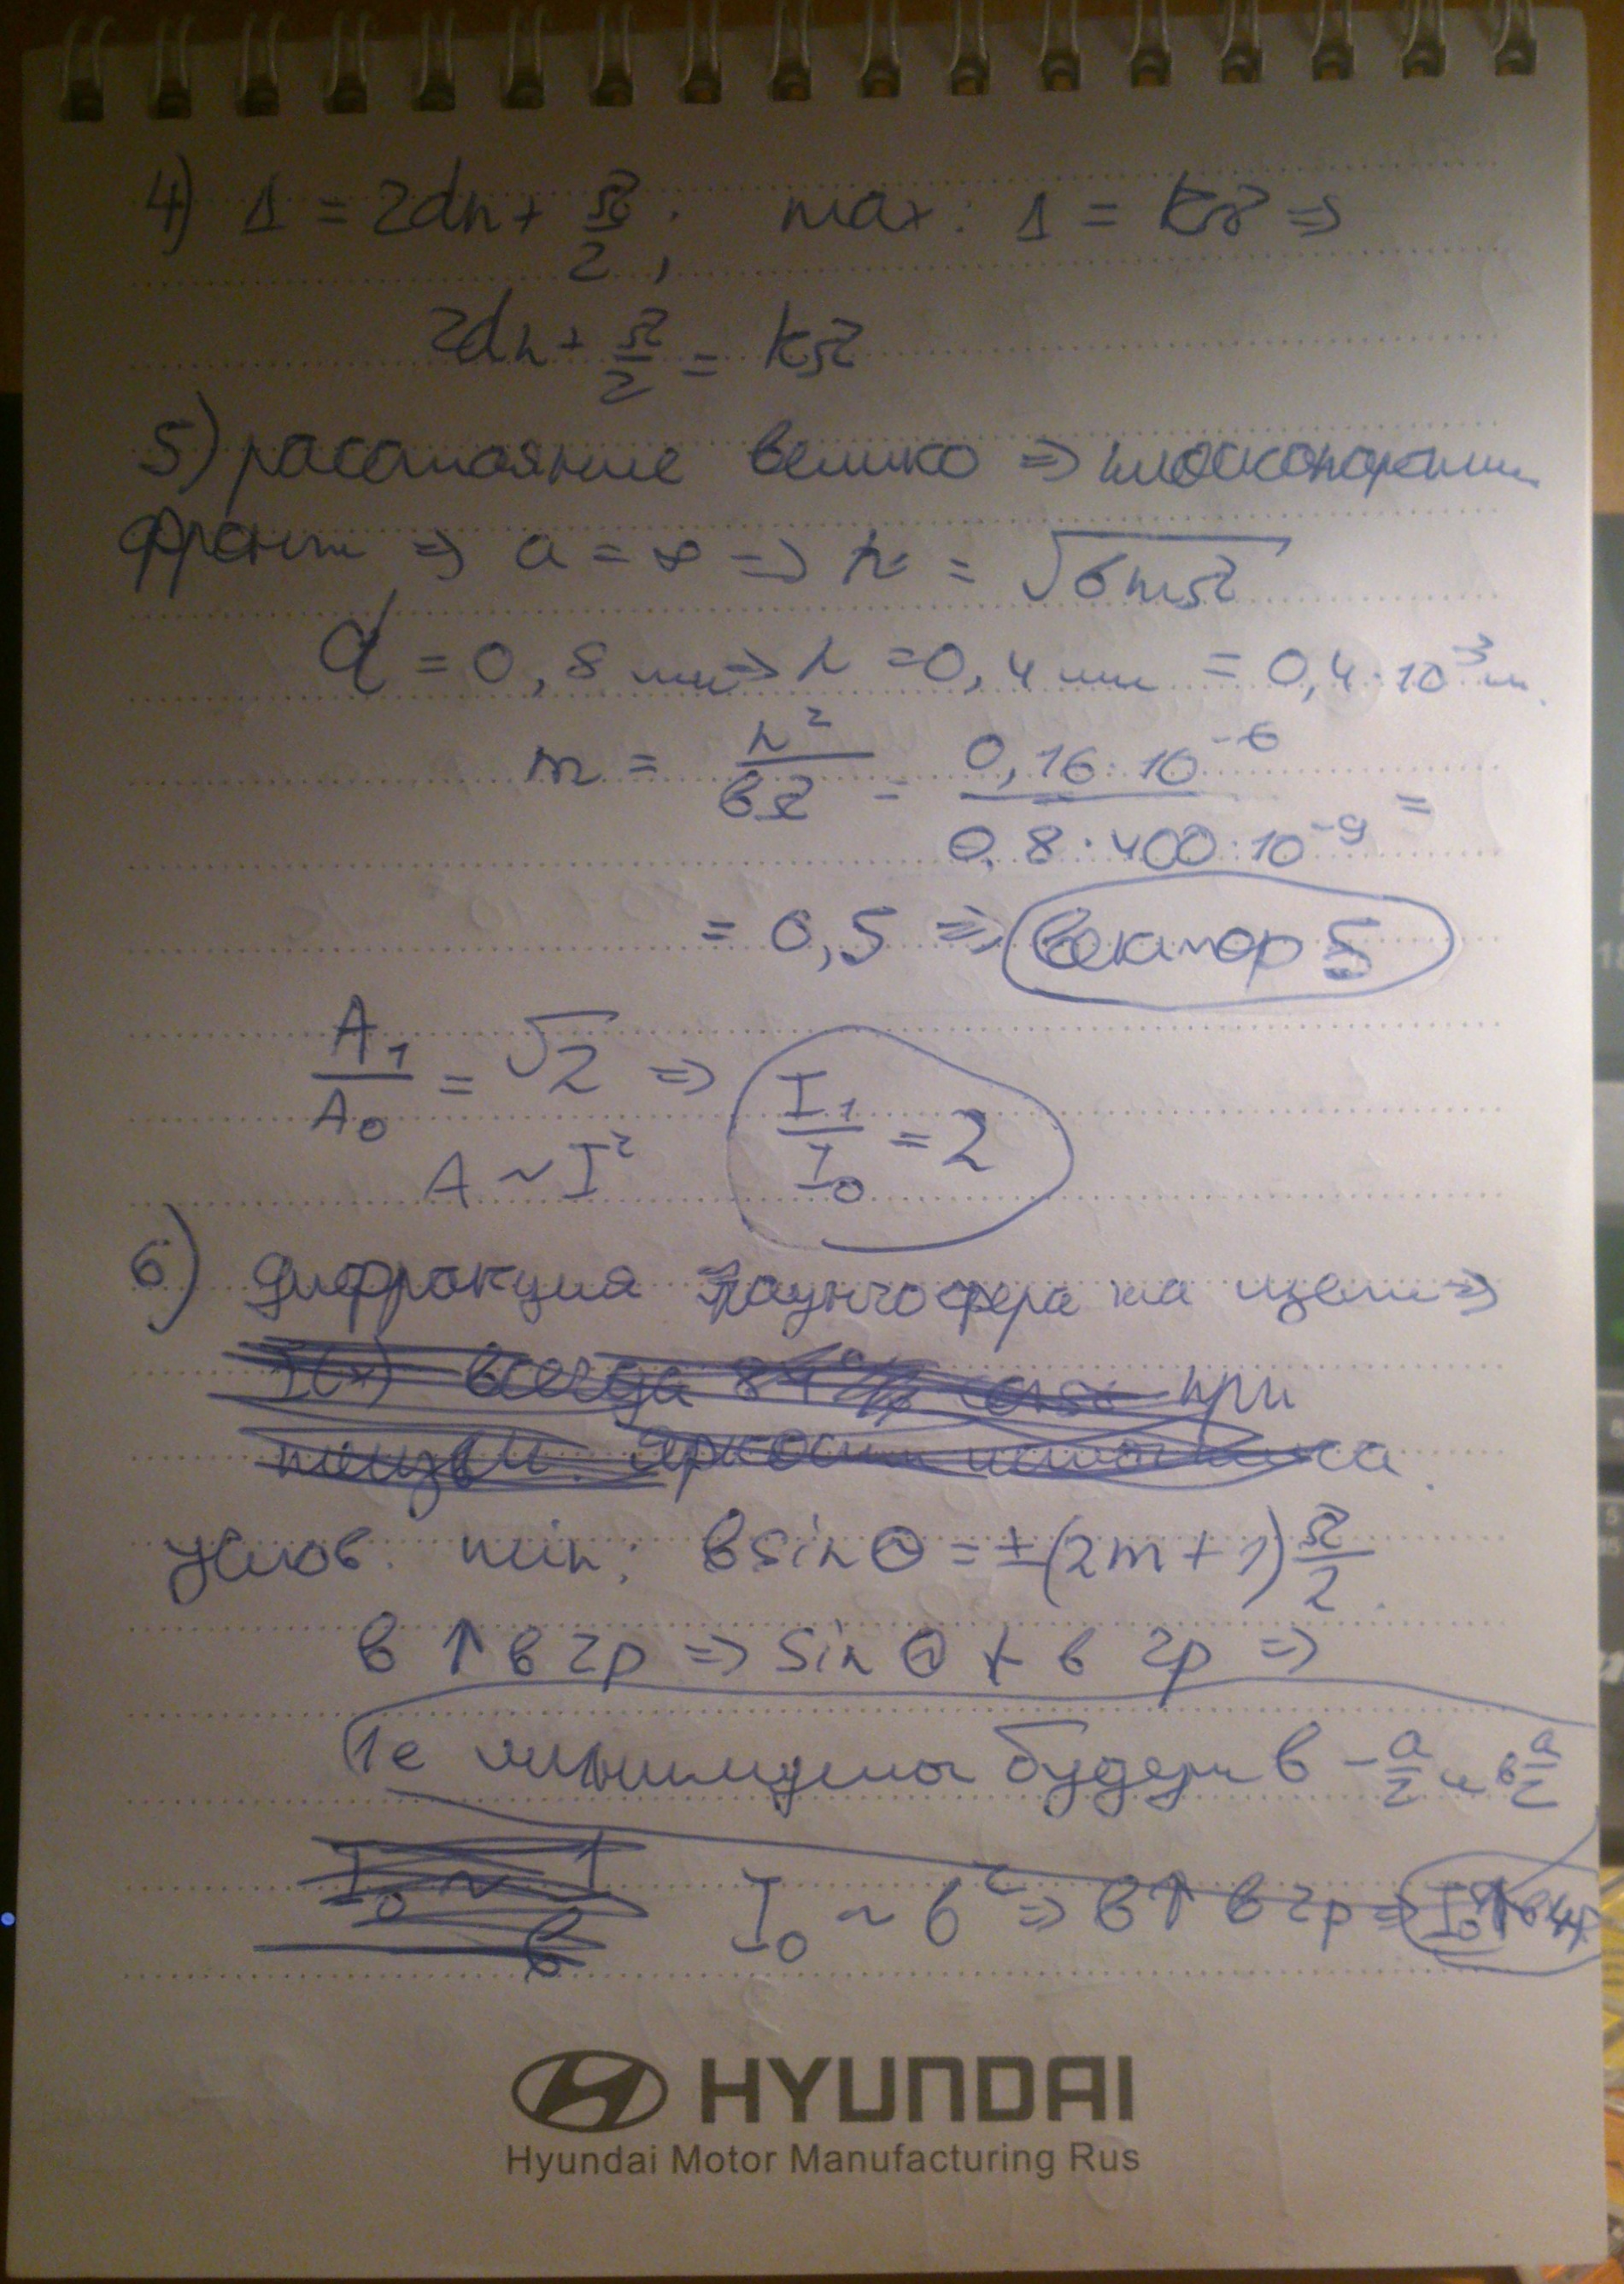 4) Δ = 2dn + λ/2; max: Δ = kλ ⇒
2dn + λ/2 = kλ
5) расстояние велико ⇒ плоскопаралл.
фронт ⇒ a = ∞ ⇒ r = √bmλ
d = 0,8 мм ⇒ r = 0,4 мм = 0,4·10⁻³ м.
m = r²/bλ = 0,16·10⁻⁶/0,8·400·10⁻⁹ =
= 0,5 ⇒ вектор 5
A₁/A₀ = √2 ⇒ I₁/I₀ = 2
A ~ I²
6) Дифракция Фраунгофера на щели ⇒
I(x) всегда при
неизвн. яркости источника.
услов. min: b sin Θ = ±(2m + 1) λ/2.
b ↑ в 2р ⇒ sin Θ ↓ в 2р ⇒
Те минимумы будут в -a/2 и в a/2
I₀ ~ 1/b I₀ ~ b² ⇒ b ↑ в 2р ⇒ I₀ ↑ в 4р
HYUNDAI
Hyundai Motor Manufacturing Rus